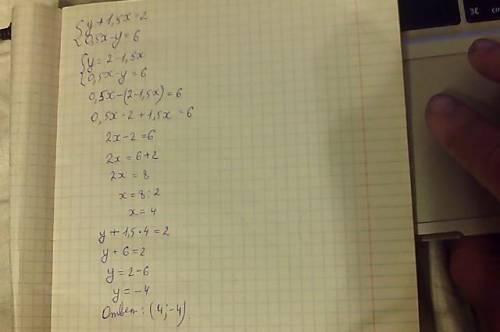 {y + 1,5x = 2
0,5x - y = 6
{y = 2 - 1,5x
0,5x - y = 6
0,5x - (2 - 1,5x) = 6
0,5x - 2 + 1,5x = 6
2x - 2 = 6
2x = 6 + 2
2x = 8
x = 8 : 2
x = 4
y + 1,5 · 4 = 2
y + 6 = 2
y = 2 - 6
y = -4
Ответ: (4; -4)